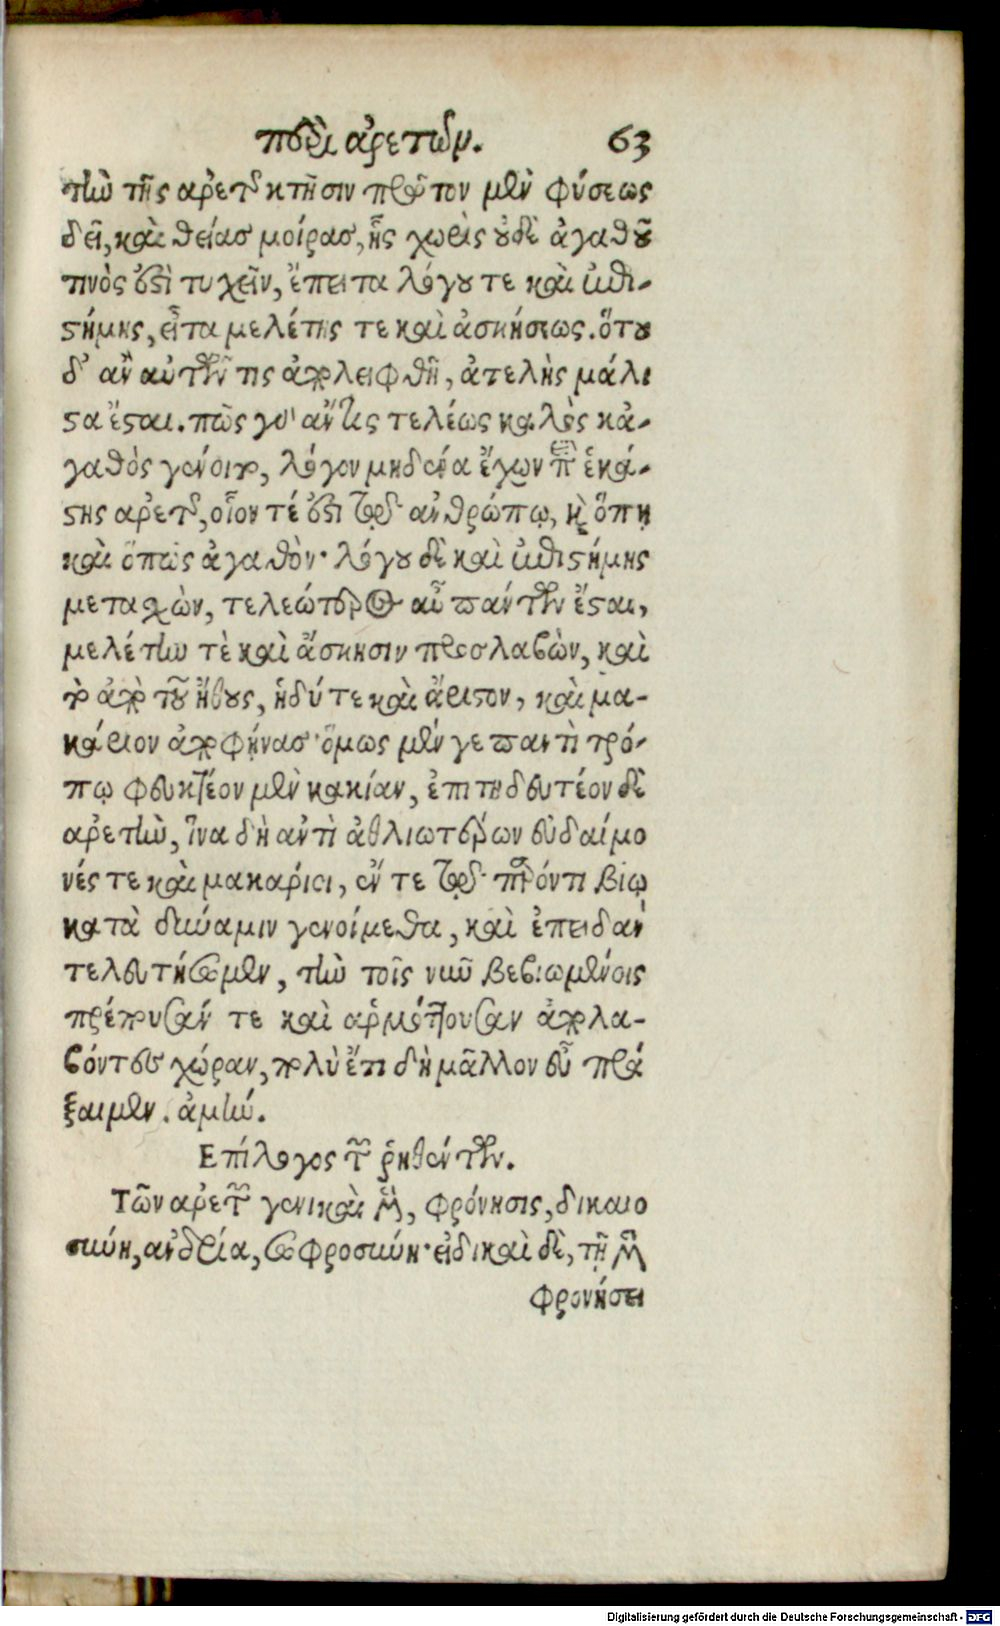 περὶ ἀρετῶν. 63
τὴν τῆς ἀρετῆς κτῆσιν πρῶτον μὲν φύσεως
δεῖ, καὶ θείας μοίρας, ἧς χωρὶς οὐδὲ ἀγαθοῦ
τινὸς ἐστὶ τυχεῖν, ἔπειτα λόγου τε καὶ ἐπι-
στήμης, εἶτα μελέτης τε καὶ ἀσκήσεως. ὅτου
δ' ἂν αὐτῶν τις ἀπολειφθῇ, ἀτελὴς μάλι
στα ἔσται. πῶς γὰρ ἄν τις τελέως καλὸς κἀ-
γαθὸς γένοιτο, λόγον μηδένα ἔχων περὶ ἑκά-
στης ἀρετῆς, οἷον τέ ἐστι τῷδ' ἀνθρώπῳ, καὶ ὅπη
καὶ ὅπως ἀγαθὸν· λόγου δὲ καὶ ἐπιστήμης
μετασχὼν, τελεώτερος αὖ πάντων ἔσται,
μελέτην τὲ καὶ ἄσκησιν προσλαβὼν, καὶ
τὸ ἀπὸ τοῦ ἤθους, ἡδύ τε καὶ ἄριστον, καὶ μα-
κάριον ἀποφήνας· ὅμως μέν γε παντὶ τρό-
πῳ φευκτέον μὲν κακίαν, ἐπιτηδευτέον δὲ
ἀρετὴν, ἵνα δὴ ἀντὶ ἀθλιωτέρων εὐδαίμο
νές τε καὶ μακάριοι, ἔν τε τῷδ' παρόντι βίῳ
κατὰ δύναμιν γενοίμεθα, καὶ ἐπειδὰν
τελευτήσωμεν, τὴν τοῖς νῦν βεβιωμένοις
πρέπουσάν τε καὶ ἁρμόττουσαν ἀπολα-
βόντες χώραν, πολὺ ἔτι δὴ μᾶλλον εὖ πρά
ξαιμεν. ἀμήν.
Ἐπίλογος τῶν ῥηθέντων.
Τῶν ἀρετῶν γενικαὶ μὲν, φρόνησις, δικαιο
σύνη, ἀνδρία, σωφροσύνη· εἰδικαὶ δὲ, τῇ μὲν
φρονήσει
Digitalisierung gefördert durch die Deutsche Forschungsgemeinschaft - DFG